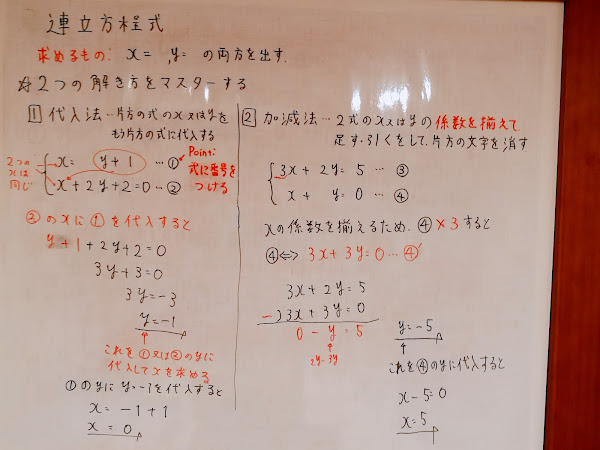 連立方程式
求めるもの: x= ,y= の両方を出す.
☆2つの解き方をマスターする
1 代入法…片方の式のx又はyを
もう片方の式に代入する
2つの
xは
同じ
x= y+1 …①
x+2y+2=0…②
Point:
式に番号を
つける
②のxに①を代入すると
y+1+2y+2=0
3y+3=0
3y=-3
y=-1
↑
これを①又は②のyに
代入してxを求める
①のyにy=-1を代入すると
x= -1+1
x= 0
2 加減法…2式のx又はyの係数を揃えて
足す・引くをして、片方の文字を消す
3x+2y=5 …③
x+ y=0 …④
xの係数を揃えるため、④×3すると
④⇔ 3x+3y=0…④'
3x+2y=5
-)3x+3y=0
0-y=5
↑
2y-3y
y=-5
↑
これを④のyに代入すると
x-5=0
x=5